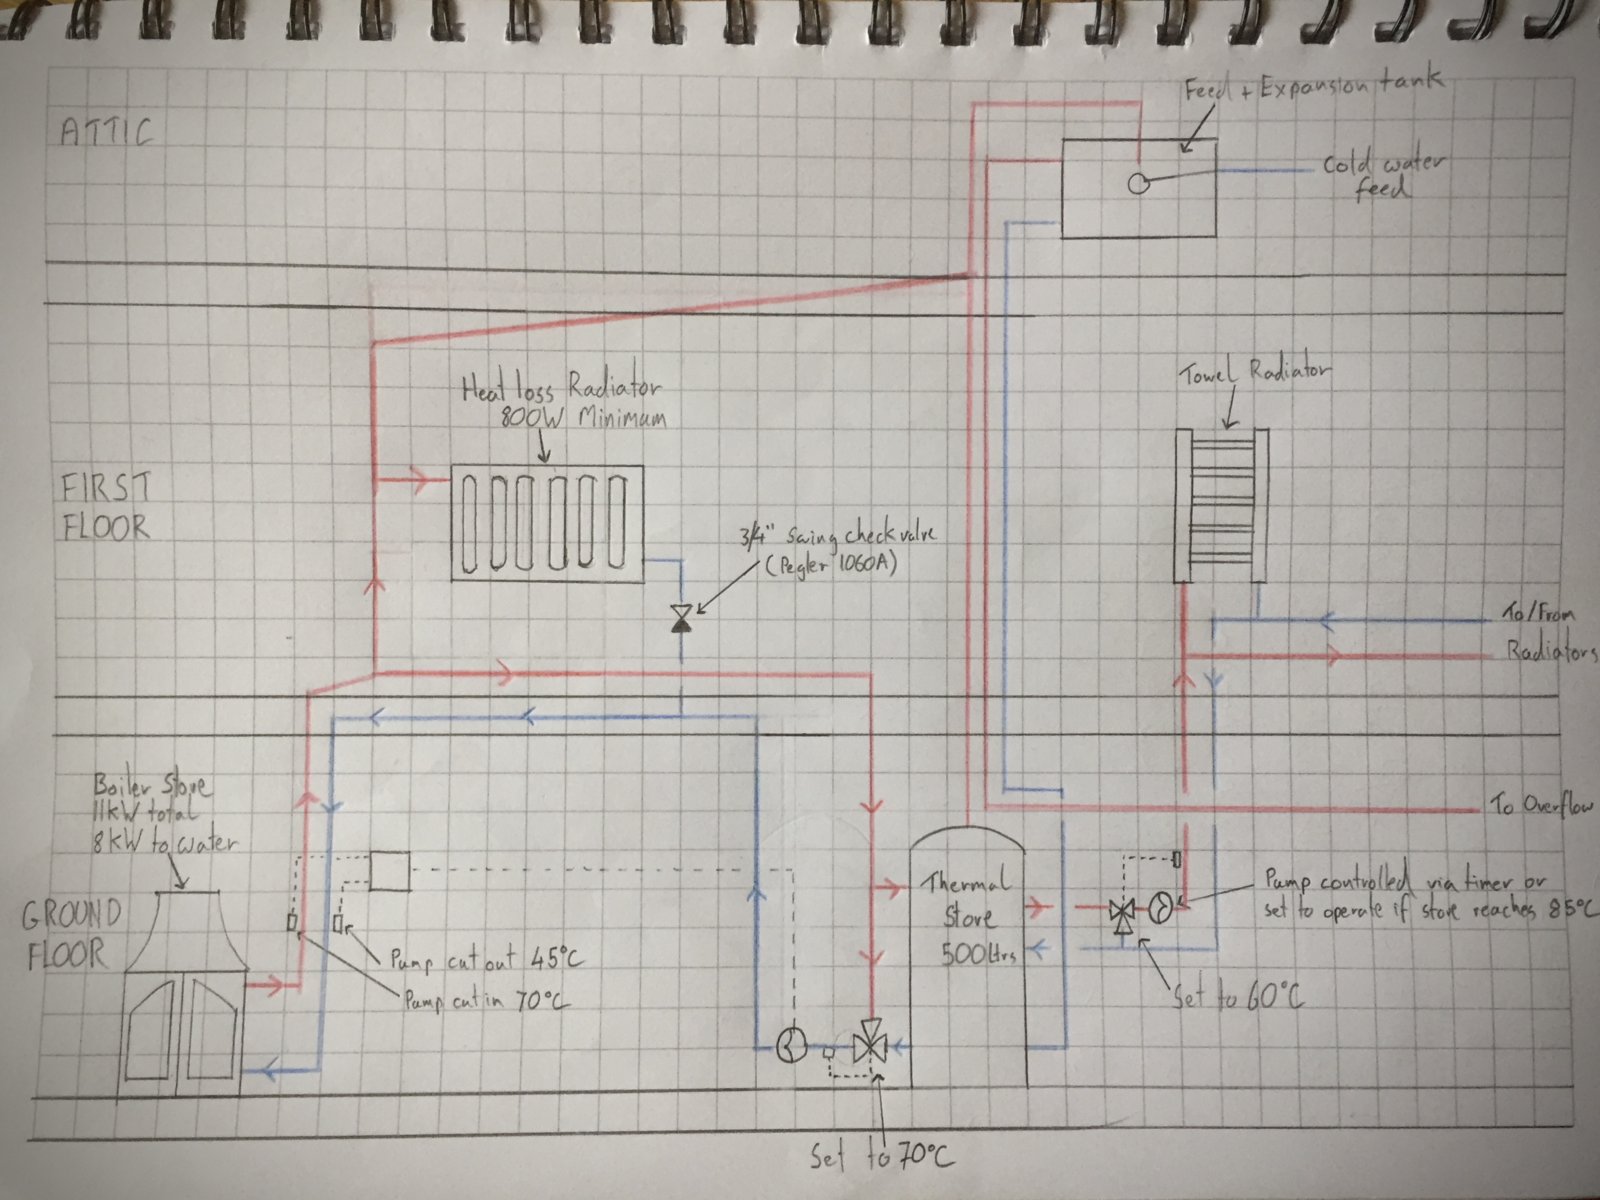 Feed + Expansion tank
ATTIC
Cold water
feed
Towel Radiator
Heat loss Radiator
800W Minimum
FIRST
FLOOR
3/4" Swing check valve
(Pegler 1060A)
To/From
Radiators
Boiler Stove
11kW total
8kW to water
To Overflow
GROUND
FLOOR
Thermal
Store
500Ltrs
Pump controlled via timer or
set to operate if store reaches 85°C
Pump cut out 45°C
Pump cut in 70°C
Set to 60°C
Set to 70°C